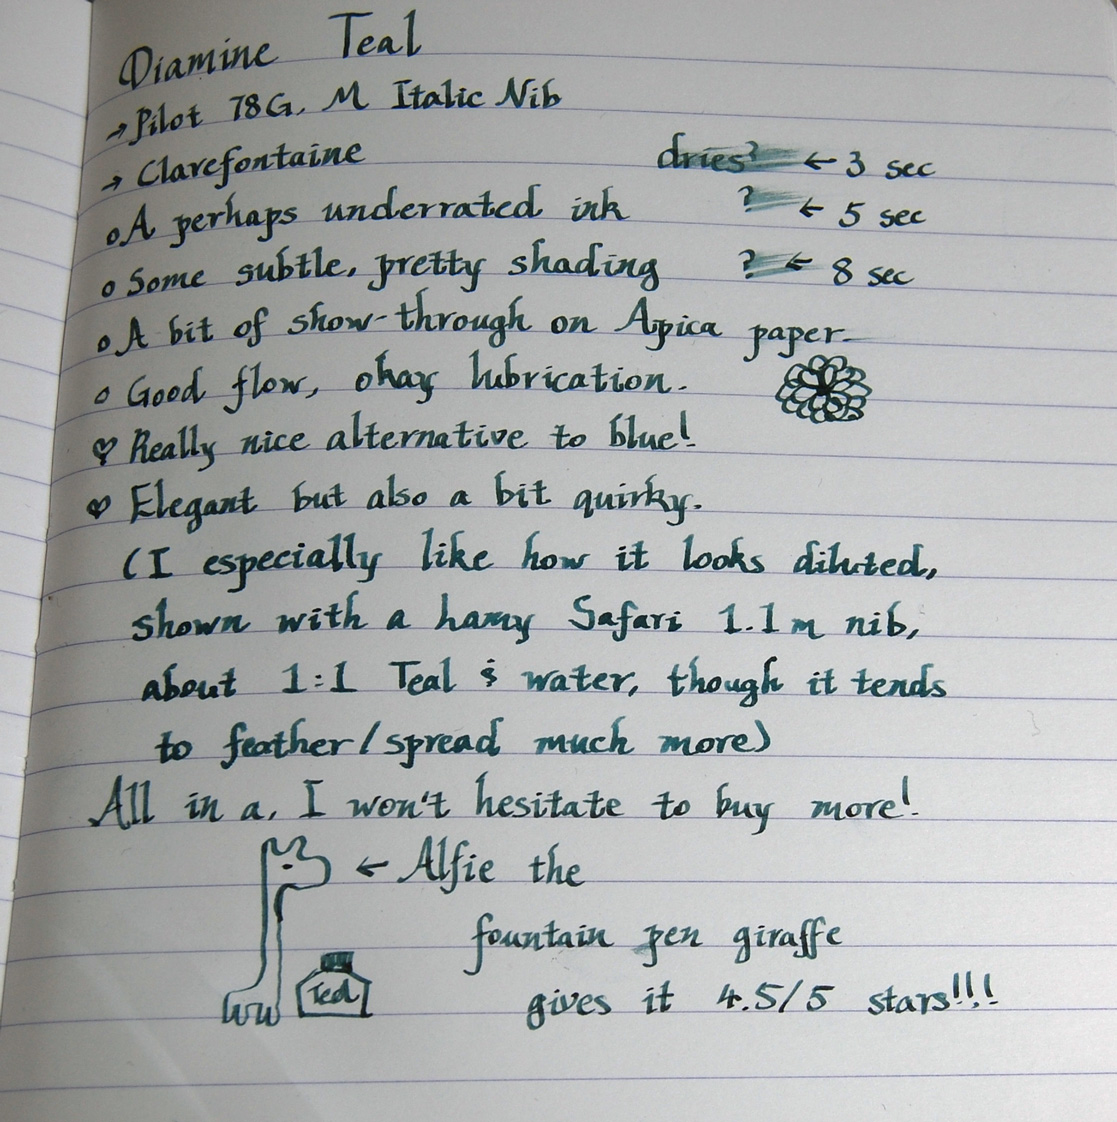 Diamine Teal
→ Pilot 78G, M Italic Nib
→ Clarefontaine
dries? ← 3 sec
o A perhaps underrated ink
? ← 5 sec
o Some subtle, pretty shading
? ← 8 sec
o A bit of show-through on Apica paper.
o Good flow, okay lubrication.
♡ Really nice alternative to blue!
♡ Elegant but also a bit quirky.
(I especially like how it looks diluted,
shown with a Lamy Safari 1.1m nib,
about 1:1 Teal & water, though it tends
to feather/spread much more)
All in a, I won't hesitate to buy more!
← Alfie the
fountain pen giraffe
gives it 4.5/5 stars!!!!
Teal